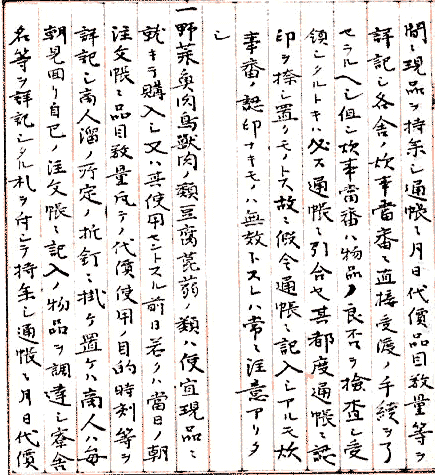 間ニ現品ヲ持参シ通帳ニ月日代價品目数量等ヲ
詳記シ各舎ノ炊事當番ニ直接受渡ノ手續ヲ了
セラルヘシ但シ炊事當番ハ物品ノ良否ヲ檢査シ受
領シタルトキハ必ス通帳ニ引合セ其都度通帳ニ認
印ヲ捺シ置クモノトス故ニ假令通帳ニ記入シアルモ炊
事番ノ認印ナキモノハ無效トスレハ常ニ注意アリタ
シ
一野菜魚肉鳥獸肉ノ類豆腐蒟蒻ノ類ハ便宜現品ニ
就キテ購入シ又ハ其使用セントスル前日若クハ當日ノ朝
注文帳ニ品目数量凡テノ代價使用ノ目的時刻等ヲ
詳記シ商人溜ノ所定ノ折釘ニ掛ケ置ケハ商人ハ毎
朝見回リ自己ノ注文帳ニ記入ノ物品ヲ調達シ寮舎
名等ヲ詳記シタル札ヲ付シテ持参シ通帳ニ月日代價